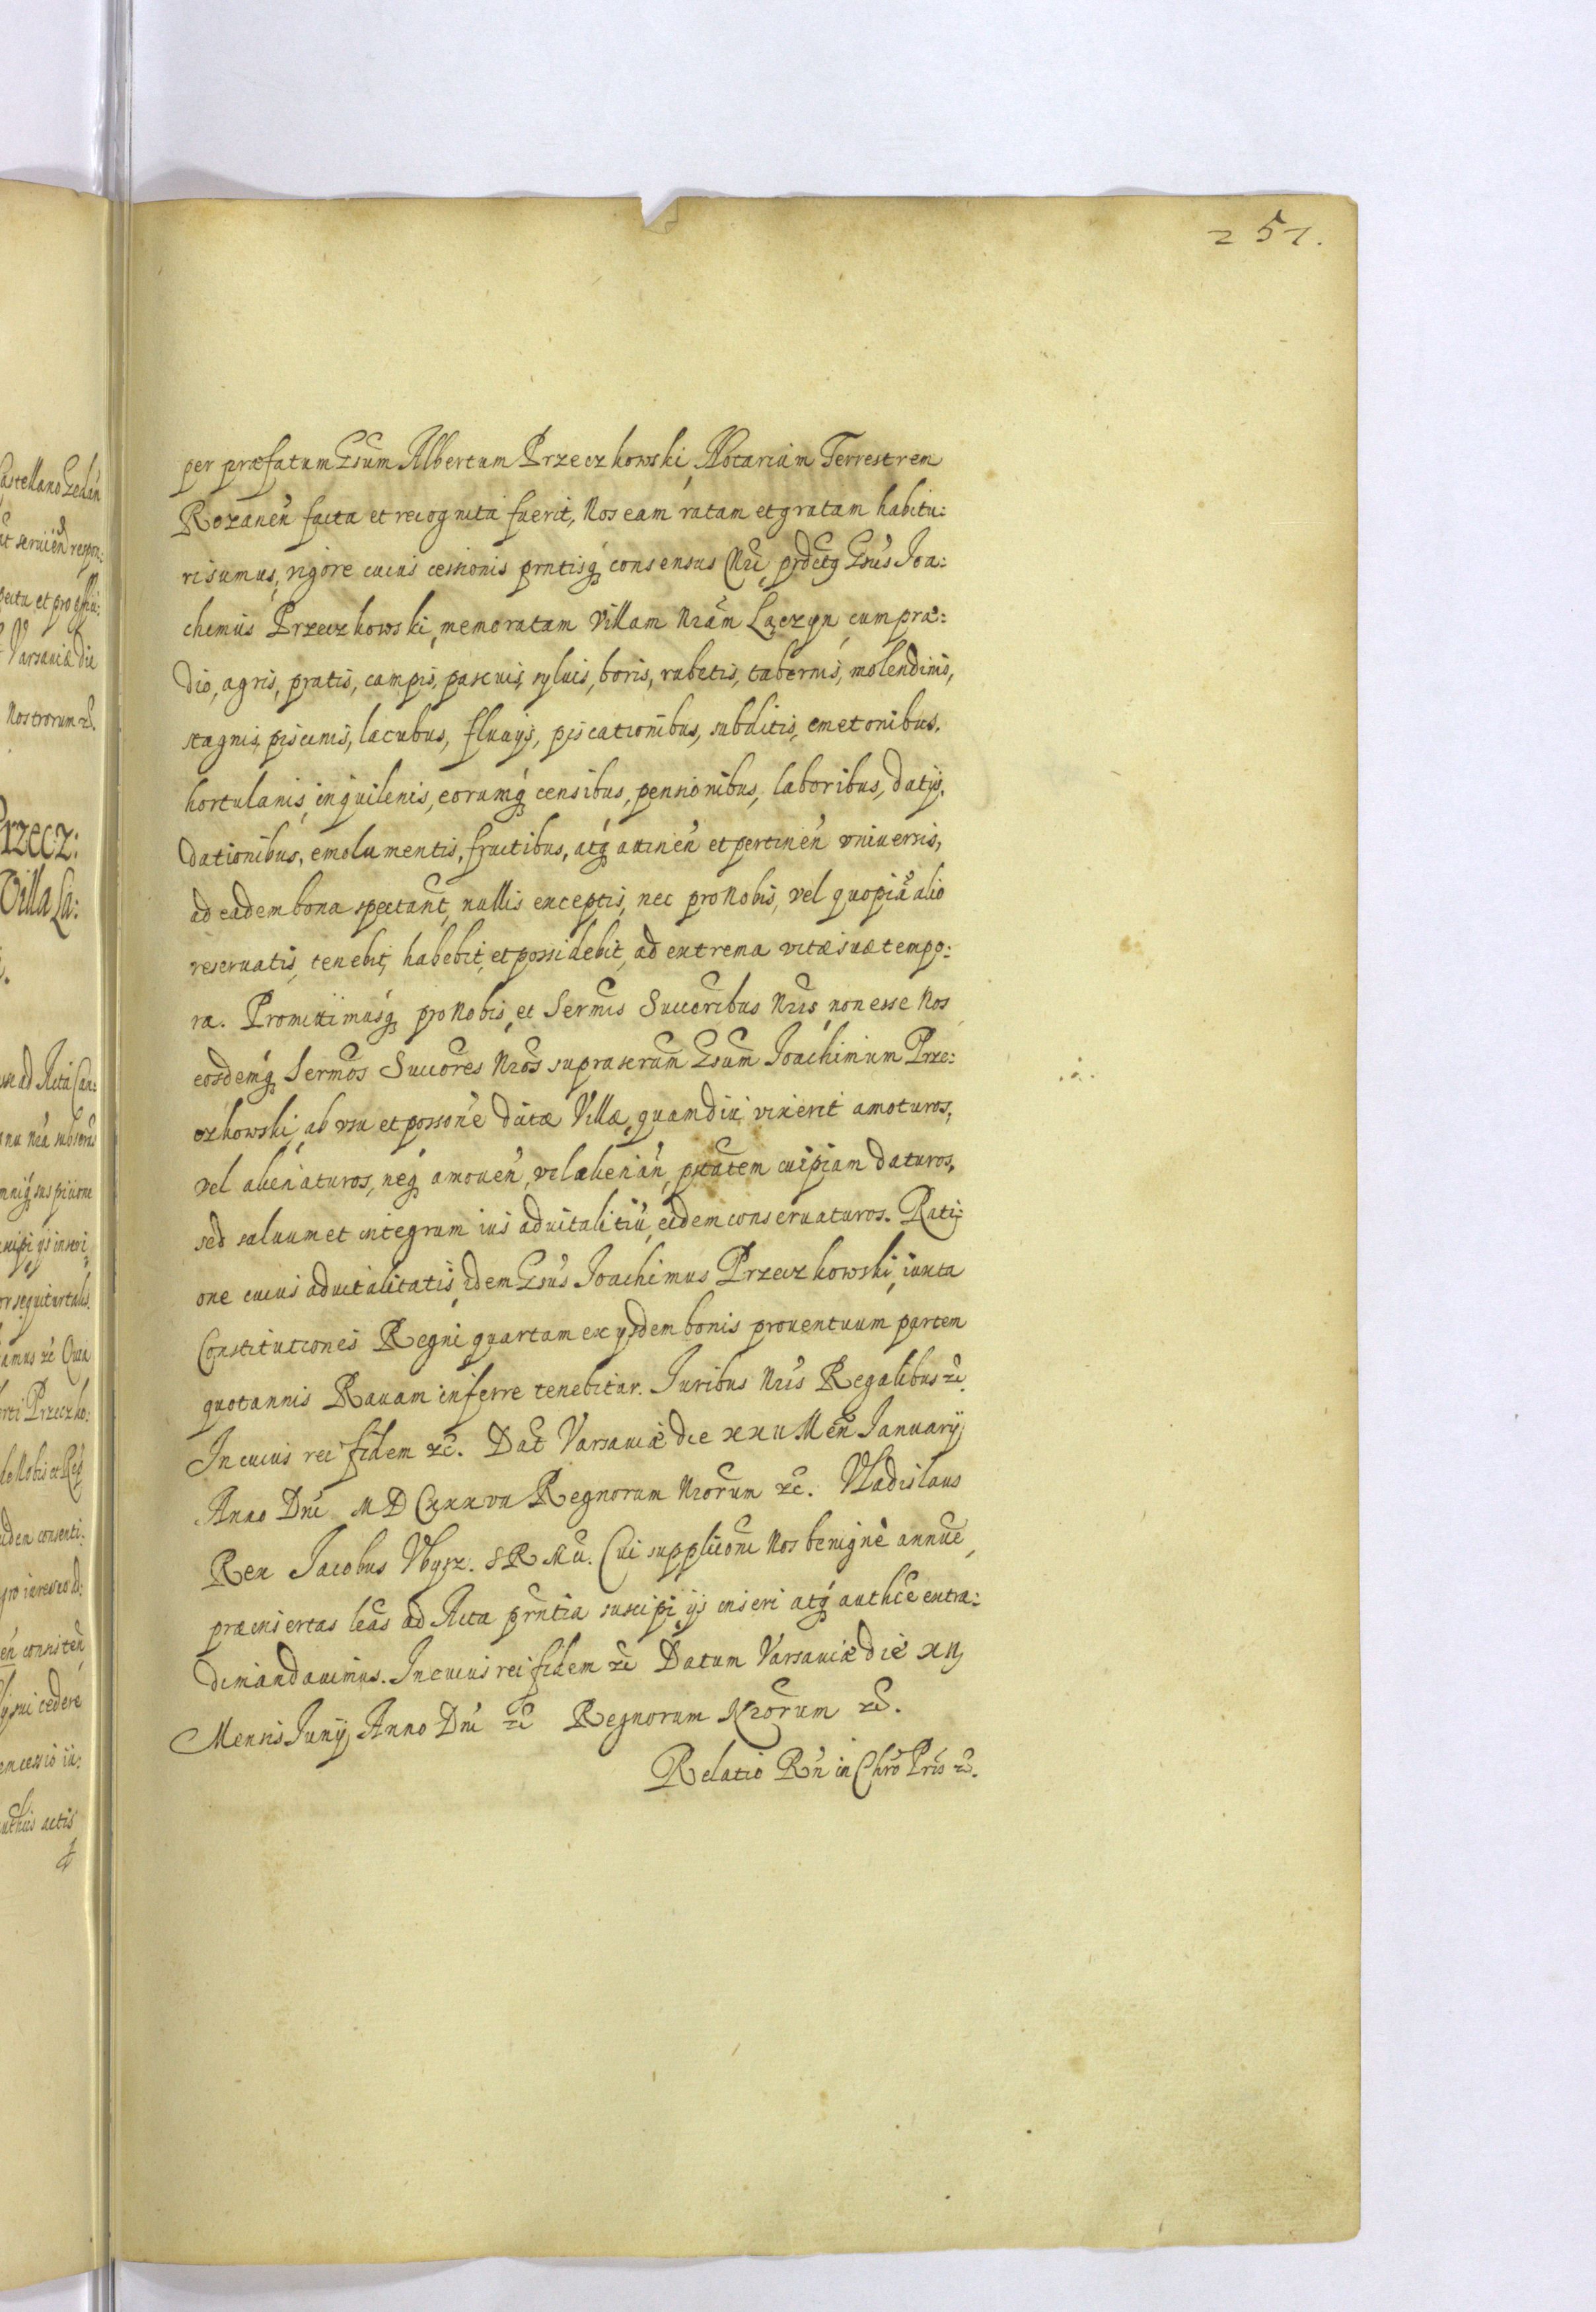 251.
per præfatum Gsum Albertum Przeczkowski, Notarium Terrestrem
Rozanen̄ facta et recognita fuerit, Nos eam ratam et gratam habitu:
ri sumus, vigore cuius cessionis prntisq consensus Nri, prdctq Gsus Joa:
chimus Przeczkowski, memoratam Villam Nrām Łączyn, cum præ:
dio, agris, pratis, campis, pascuis, syluis, boris, rubetis, tabernis, molendinis,
stagnis, piscinis, lacubus, fluuijs, piscationibus, subditis, cmetonibus,
hortulanis, inquilinis, eorumq censibus, pensionibus, laboribus, datijs,
dationibus, emolumentis, fructibus, atq attinen̄ et pertinen̄ vniuersis,
ad eadem bona spectan̄t, nullis exceptis, nec pro Nobis, vel quopiā alio
reseruatis, tenebit, habebit, et possidebit, ad extrema vitæ suæ tempo:
ra. Promittimusq pro Nobis, et Sermis Succoribus Nris, non esse Nos
eosdemq Sermos Succores Nros suprascrum Gsum Joachimum Prze:
czkowski, ab vsu et possone dictæ Villæ, quamdiu vixerit amoturos,
vel alienaturos, neq amouen̄, vel alienan̄, ptatem cuipiam daturos,
sed saluum et integrum ius aduitalitiū, eidem conseruaturos. Rati:
one cuius aduitalitatis, idem Gsus Joachimus Przeczkowski, iuxta
Constitutiones Regni quartam ex ijsdem bonis prouentuum partem
quotannis Rauam inferre tenebitur. Juribus Nris Regalibus &c.
In cuius rei fidem &c. Dat Varsauiæ die xxii Men Januarij
Anno Dni MDCxxxvii Regnorum Nrorum &c. Vladislaus
Rex Jacobus Vbysz. SRMtt. Cui supplicōni Nos benignè annuē
præinsertas lras ad Acta prntia suscipi, ijs inseri atq authce extra:
di mandauimus. In cuius rei fidem &c Datum Varsauiæ die xij
Mensis Junij Anno Dni &c Regnorum Nrorum &c.
Relatio Rn in Chro Pris &c.